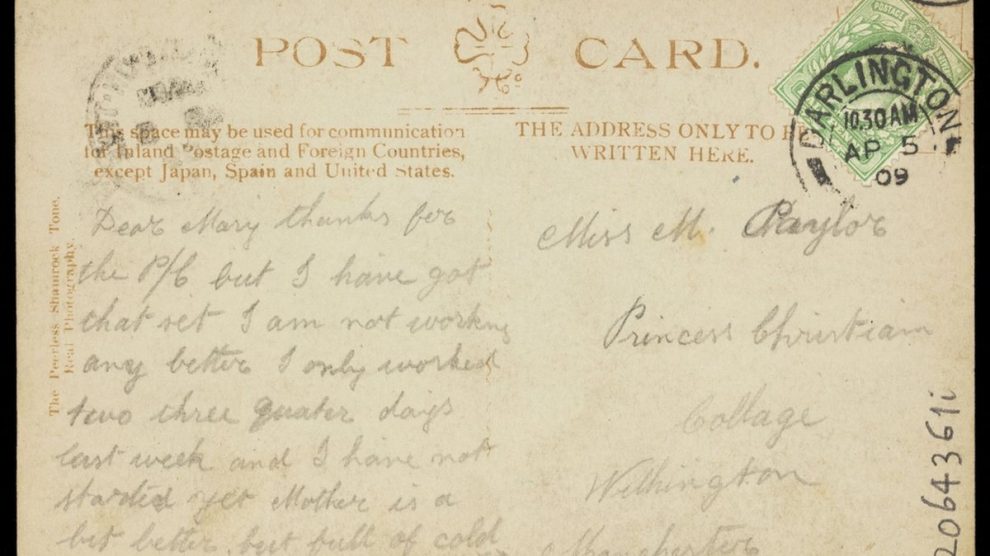 POST CARD.
This space may be used for communication
for Inland Postage and Foreign Countries,
except Japan, Spain and United States.
THE ADDRESS ONLY TO BE
WRITTEN HERE.
DARLINGTON
10.30 AM
AP 5
09
POSTAGE
The Peerless Shamrock Tone.
Real Photography.
Dear Mary thanks for
the P/C but I have got
that set I am not working
any better I only worked
two three quater days
last week and I have not
started yet Mother is a
bit better but full of cold
Miss M.
Princess Christiam
Collage
Withington
Manchester
2064361i